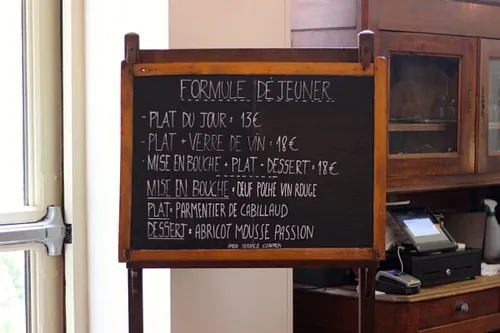 FORMULE DÉJEUNER
- PLAT DU JOUR : 13€
- PLAT + VERRE DE VIN : 18€
- MISE EN BOUCHE + PLAT + DESSERT : 18€
MISE EN BOUCHE : OEUF POCHÉ VIN ROUGE
PLAT : PARMENTIER DE CABILLAUD
DESSERT : ABRICOT MOUSSE PASSION
PRIX SERVICE COMPRIS